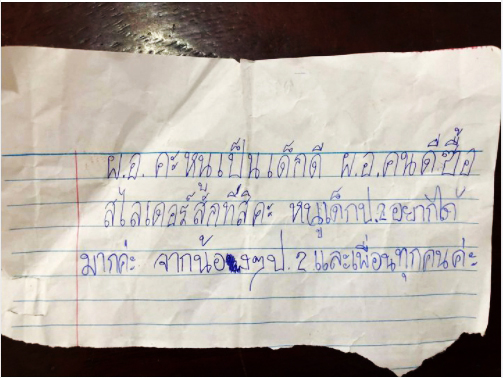 ผ.อ. คะหนูเป็นเด็กดี ผ.อ.คนดีซื้อ
สไลเดอร์สักที่สิคะ หนูเด็กป.2อยากได้
มากค่ะ จากน้องๆป.2 และเพื่อนทุกคนค่ะ